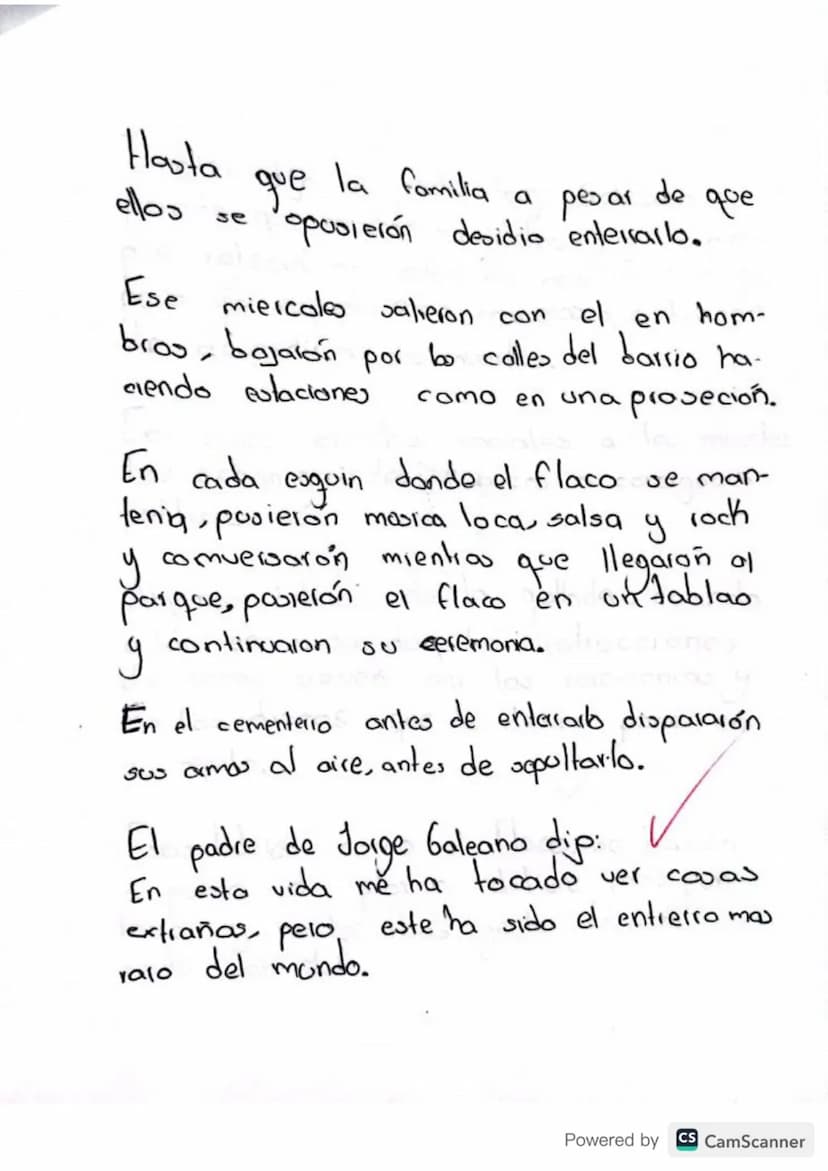 Hasta que la familia a pesar de que
ellos se opusierón desidio enterrarlo.
Ese miercoles salieron con el en hom-
bros, bajarón por las calles del barrio ha-
ciendo estaciones como en una proseción.
En cada esquin donde el flaco se man-
tenia, pusierón musica loca, salsa y rock
y comversarón mientras que llegaroñ al
parque, pusierón el flaco en un tablao
y continuaron su ceremonia.
En el cementerio antes de enterarlo dispararón
sus armas al aire, antes de sepultarlo.
El padre de Jorge Galeano dijo:
En esta vida me ha tocado ver cosas
extrañas, pero este ha sido el entierro mas
raro del mundo.
Powered by CS CamScanner